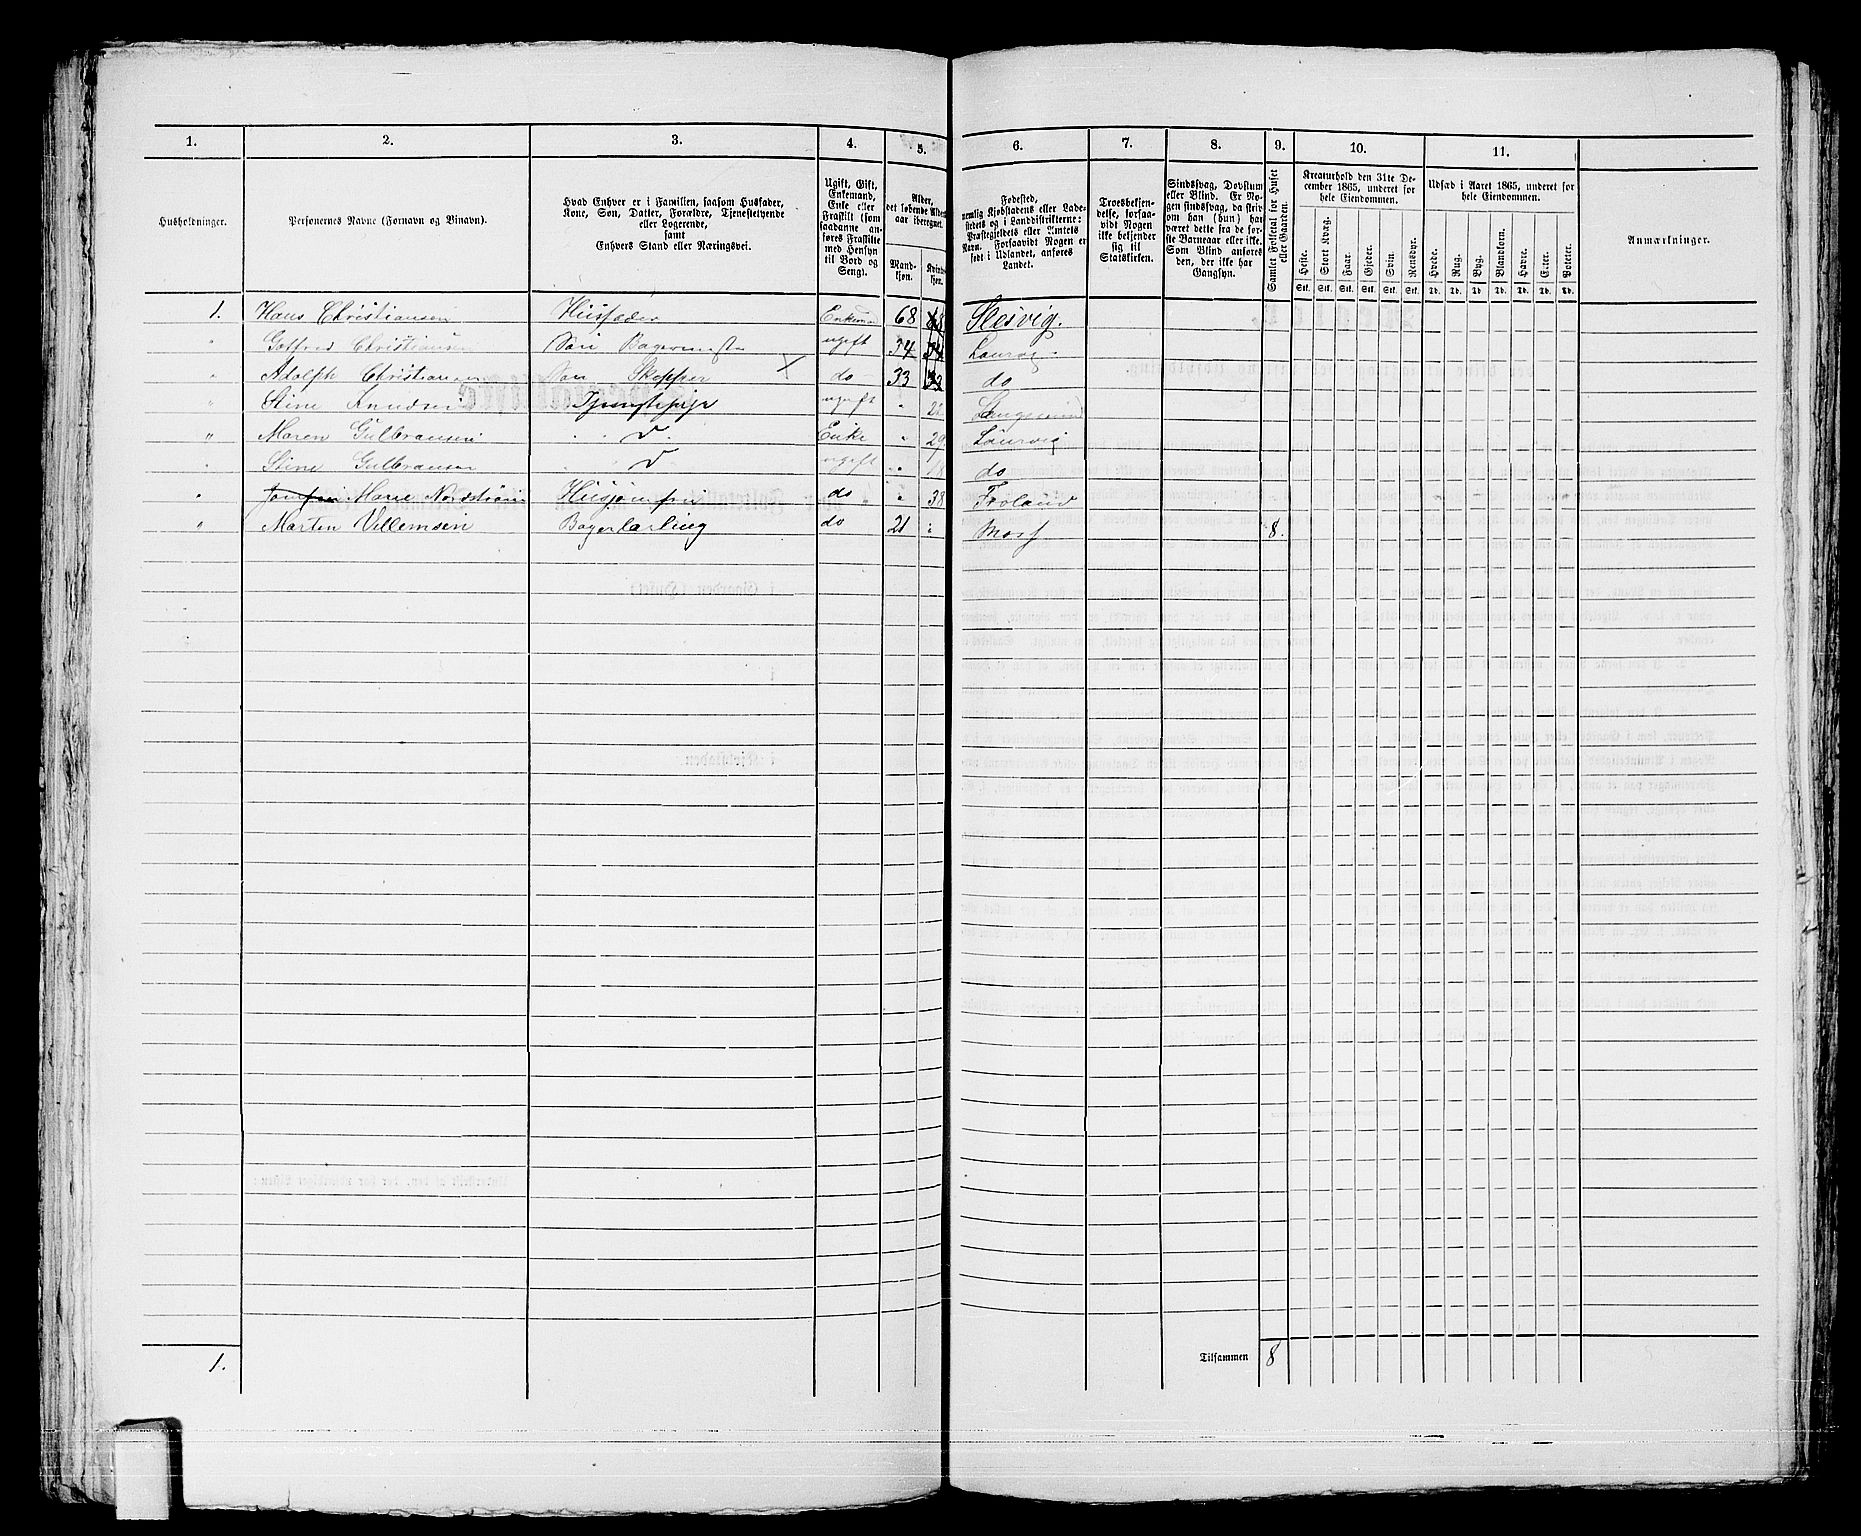 1. 2. 3. 4. 5. 6. 7. 8. 9. 10. 11.
Husholdninger.
Personernes Navne (Fornavn og Binavn).
Hvad Enhver er i Familien, saasom Husfader,
Kone, Søn, Datter, Forældre, Tjenestetyende
eller Logerende,
samt
Enhvers Stand eller Næringsvei.
Ugift, Gift,
Enkemand,
Enke eller
Fraskilt (som
saadanne an-
føres Fraskilte
med Hensyn
til Bord og
Seng).
Alder,
det løbende Alders-
aar iberegnet.
Mand-
kjøn.
Kvinde-
kjøn.
Fødested,
nemlig Kjøbstadens eller Lade-
stedets og i Landdistrikterne:
Præstegjeldets eller Amtets
Navn. Forsaavidt Nogen er
født i Udlandet, anføres
Landet.
Troesbekjen-
delse, forsaa-
vidt Nogen
ikke bekjender
sig til
Statskirken.
Sindssvag, Døvstum
eller Blind. Er No-
gen sindssvag, da skriv
om han (hun) har
været dette fra de før-
ste Barneaar eller ikke.
Som Blind anføres
den, der ikke har
Gangsyn.
Samlet Folketal for Huset
eller Gaarden.
Kreaturhold den 31te De-
cember 1865, underet for
hele Eiendommen.
Heste. Stort Kvæg. Faar. Gjeder. Svin. Rensdyr.
Stk. Stk. Stk. Stk. Stk. Stk.
Udsæd i Aaret 1865, underet for
hele Eiendommen.
Hvede. Rug. Byg. Blandkorn. Havre. Erter. Poteter.
Td. Td. Td. Td. Td. Td. Td.
Anmærkninger.
1. Hans Christiansen Husfader Enkem 68 68 Slesvig.
" Gotfred Christiansen Søn Bagermester ugift 34 34 Laurvig
" Adolph Christiansen Søn Skopper X do 33 33 do
" Stine Knudsen Tjenestepige ugift "
" Maren Gulbransen " " D. Enke " 29. Laurvig
" Stine Gulbransen " " D ugift " 18 do
" Jomfru Marie Nordstrøm Husjomfru do " 38 Froland
" Marten Villemsen Bagerlærling do 21 " Moss 8.
1. Tilsammen 8